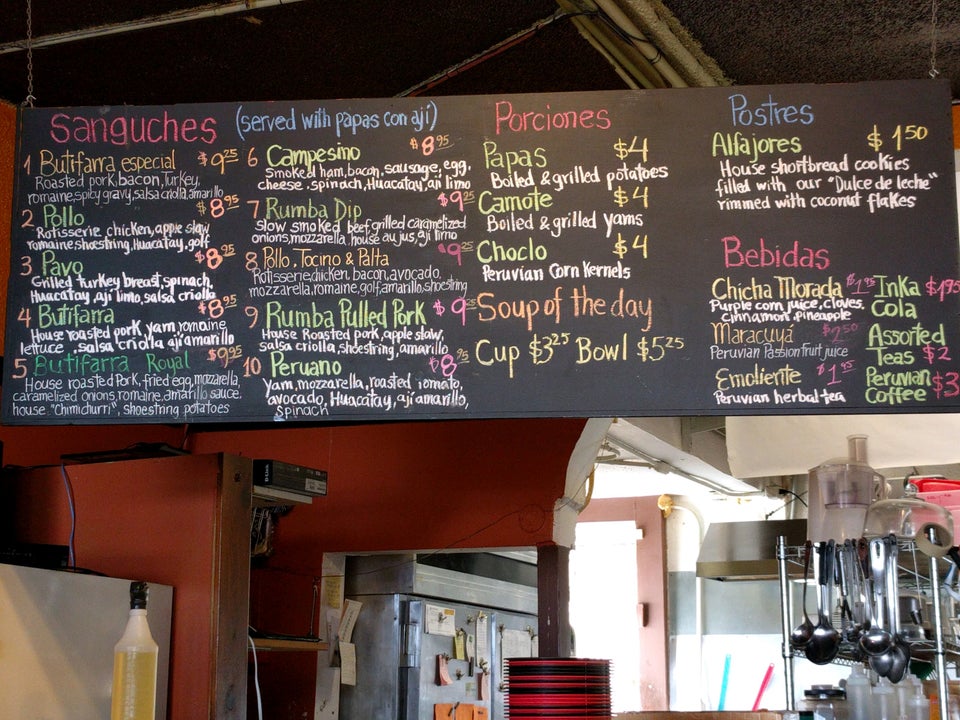 Sanguches (served with papas con ají)
1 Butifarra especial $9.25
Roasted pork, bacon, Turkey,
romaine, spicy gravy, salsa criolla, amarillo
2 Pollo $8.95
Rotisserie chicken, apple slaw
romaine, shoestring, Huacatay, golf
3 Pavo $8.95
Grilled turkey breast, spinach,
Huacatay, ají limo, salsa criolla
4 Butifarra $8.95
House roasted pork, yam, romaine,
lettuce, salsa criolla ají amarillo
5 Butifarra Royal $9.95
House roasted Pork, fried egg, mozzarella,
caramelized onions, romaine, amarillo sauce,
house "Chimichurri", shoestring potatoes
6 Campesino $8.95
Smoked ham, bacon, sausage, egg,
cheese, spinach, Huacatay, ají limo
7 Rumba Dip $9.25
slow smoked beef, grilled caramelized
onions, mozzarella, house au jus, ají limo
8 Pollo, Tocino & Palta $9.25
Rotisserie chicken, bacon, avocado,
mozzarella, romaine, golf, amarillo, shoestring
9 Rumba Pulled Pork $9.25
House Roasted pork, apple slaw,
salsa criolla, shoestring, amarillo
10 Peruano $8.95
Yam, mozzarella, roasted tomato,
avocado, Huacatay, ají amarillo,
spinach
Porciones
Papas $4
Boiled & grilled potatoes
Camote $4
Boiled & grilled yams
Choclo $4
Peruvian Corn Kernels
Soup of the day
Cup $3.25 Bowl $5.25
Postres
Alfajores $1.50
House shortbread cookies
filled with our "Dulce de leche"
rimmed with coconut flakes
Bebidas
Chicha Morada $1.95
Purple corn juice, cloves,
Cinnamon, pineapple
Maracuyá $2.50
Peruvian Passion fruit juice
Emoliente $1.95
Peruvian herbal tea
Inka $1.95
Cola
Assorted
Teas $2
Peruvian $3
Coffee